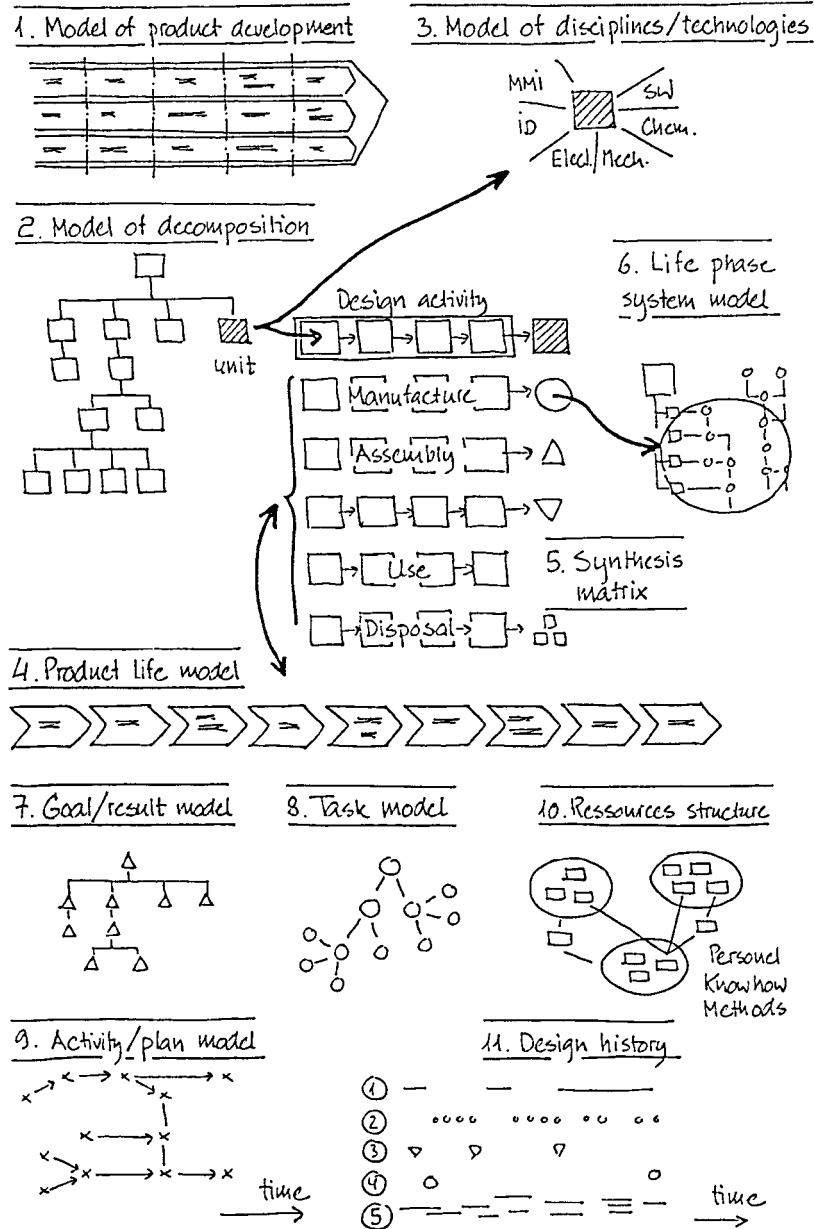 1. Model of product development
3. Model of disciplines/technologies
MMi
SW
iD
Chem.
Elect./Mech.
2. Model of decomposition
unit
Design activity
6. Life phase
system model
Manufacture
Assembly
Use
5. Synthesis
matrix
Disposal
4. Product life model
7. Goal/result model
8. Task model
10. Ressources structure
Personel
Knowhow
Methods
9. Activity/plan model
time
11. Design history
1
2
3
4
5
time